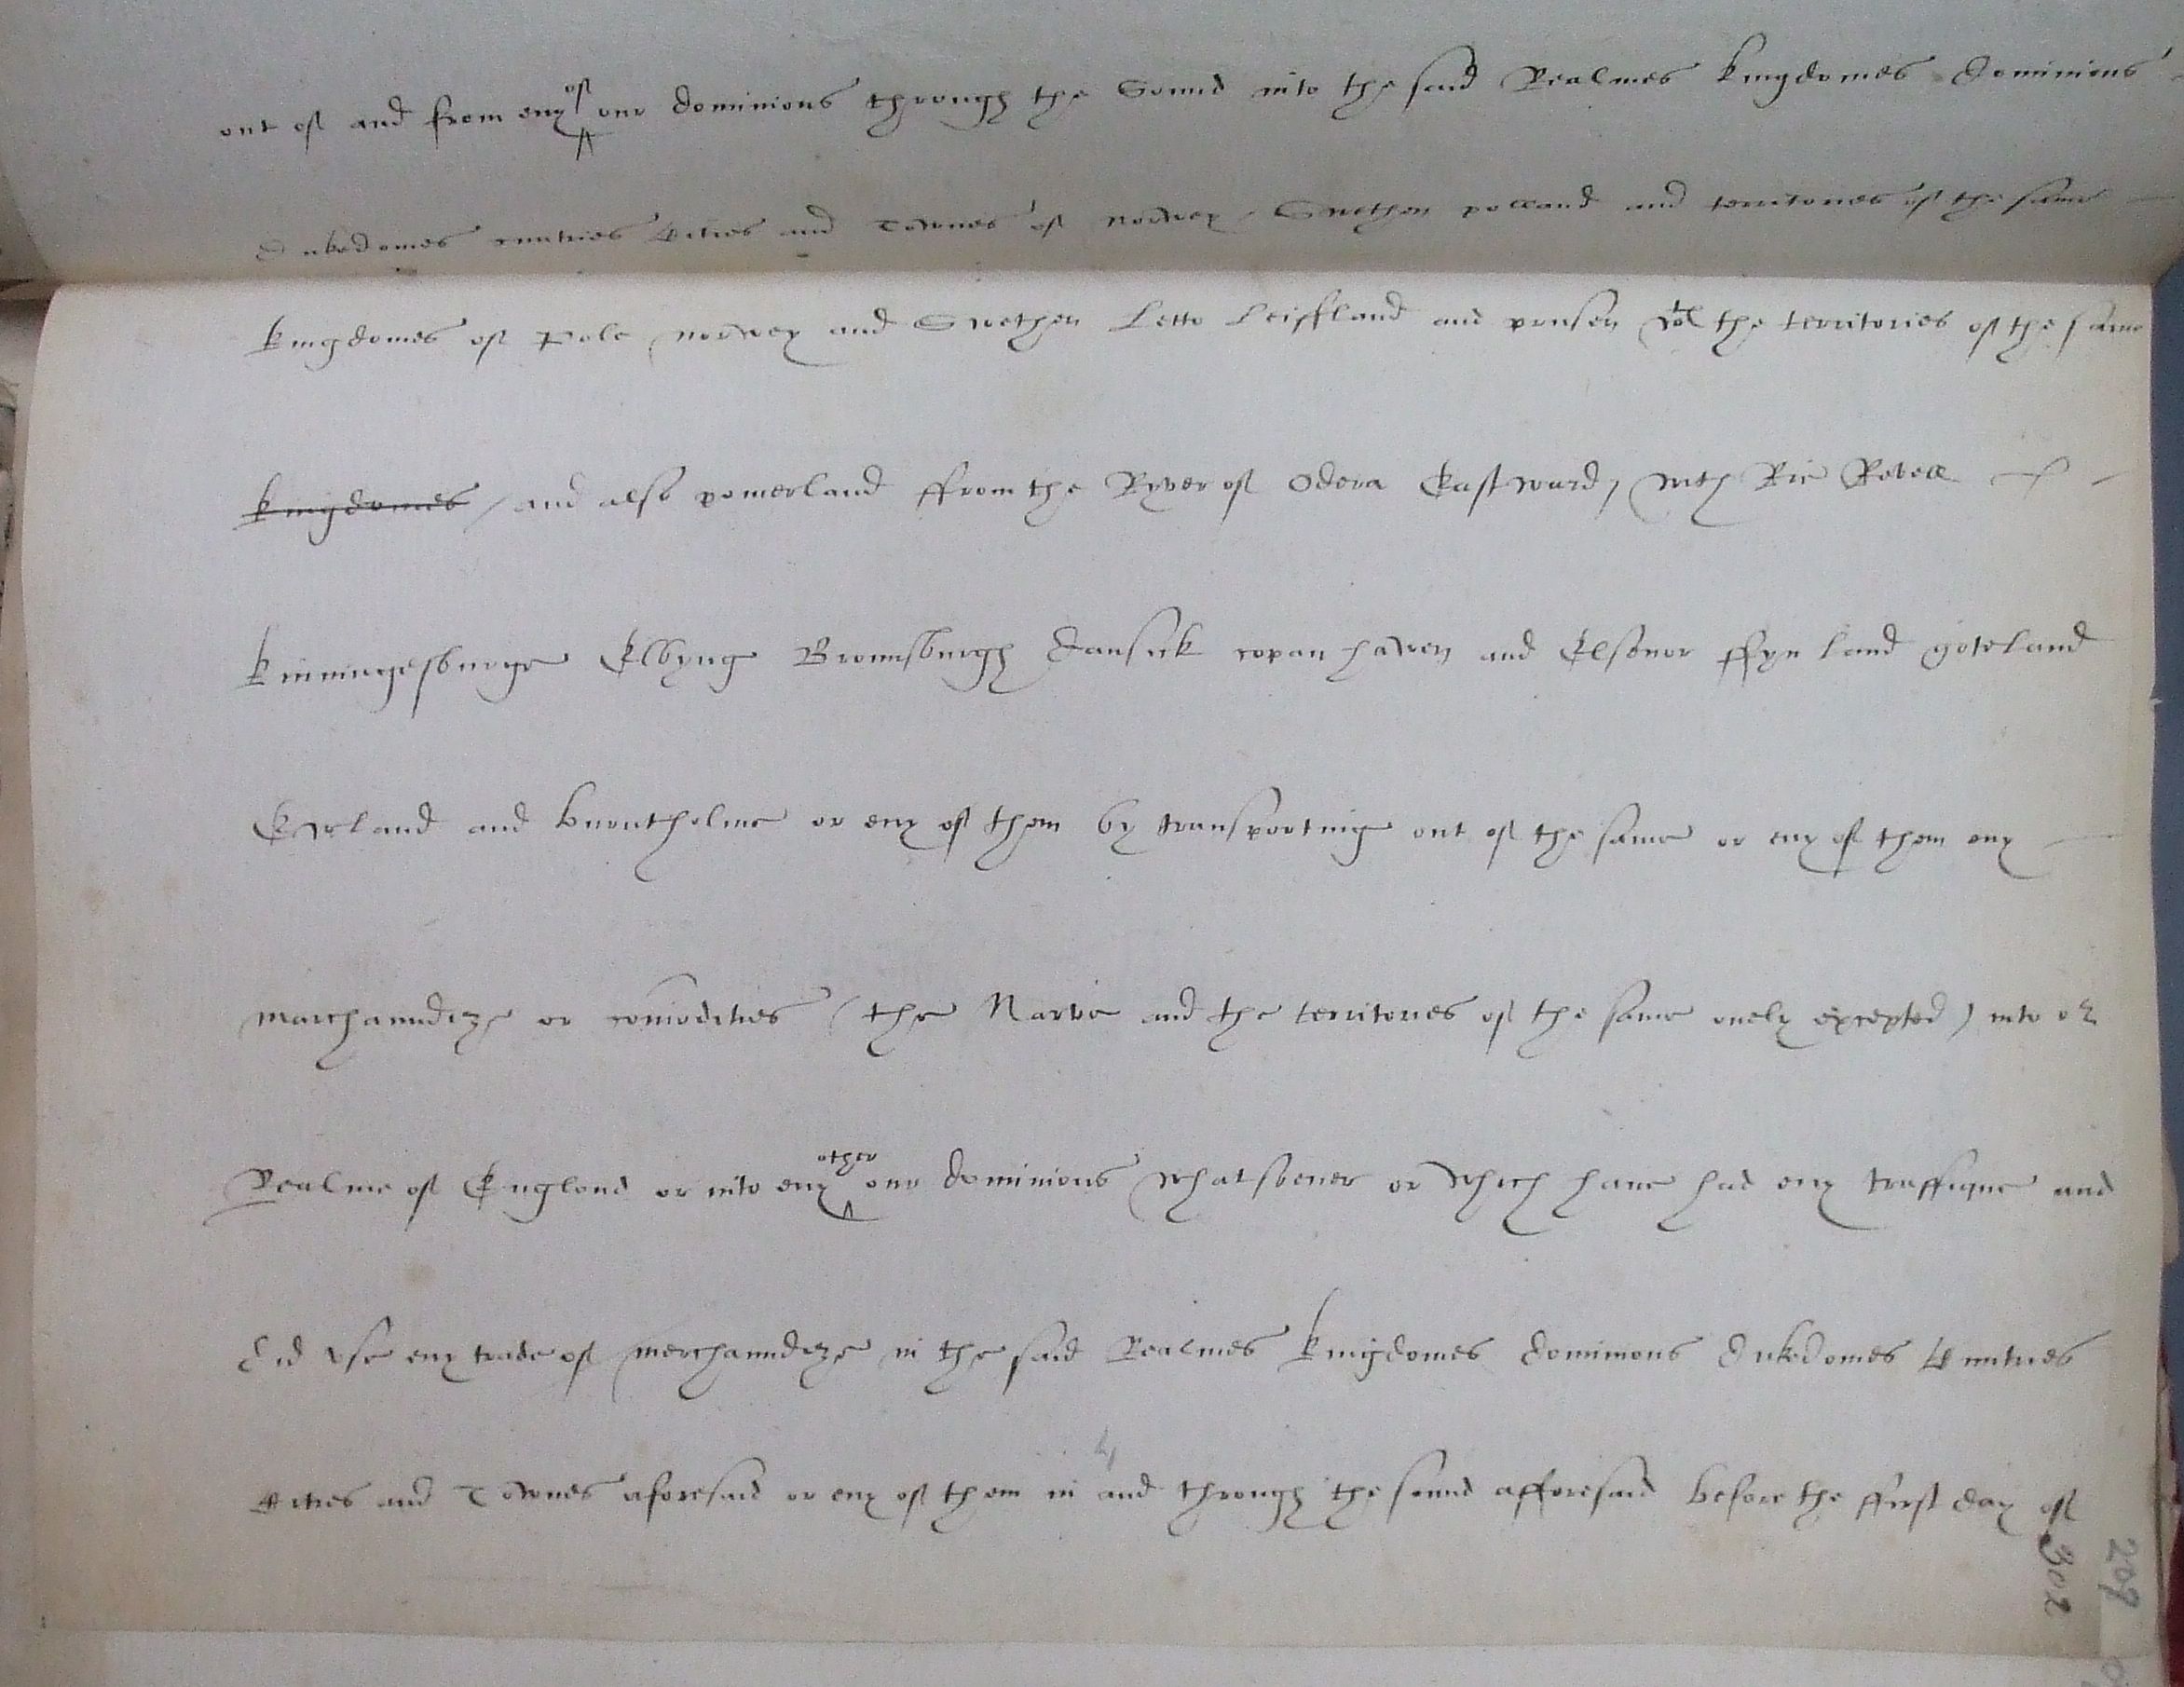 out of and from eny of our dominions through the Sound into the said Realmes kingdomes dominions
dukedomes cuntries Cities and Townes of norwey Swethen polland and territories of the same
kingdomes of Pole norwey and Swethen Letto Leiffland and prusen wth the territories of the same
kingdomes / and also pomerland ffrom the Ryver of Odera Eastward, with Rie Revell
kinningesburge Elbyng Brounsburgh dansick copan haven and Elsonor ffynland goteland
Ewland and burntholme or eny of them by transporting out of the same or eny of them eny
marchaundize or comodities (the Narve and the territories of the same onely excepted) into or
Realme of England or into eny other our dominions whatsoever or which have had eny traffique and
did use eny trade of merchaundize in the said Realmes kingdomes dominions dukedomes Cuntries
Cities and Townes aforesaid or eny of them in and through the sound afforesaid before the ffirst day of
302
209